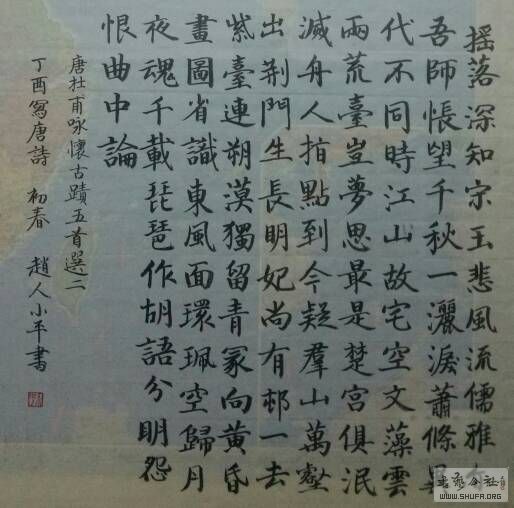 搖落深知宋玉悲風流儒雅亦
吾師悵望千秋一灑淚蕭條異
代不同時江山故宅空文藻雲
雨荒臺豈夢思最是楚宮俱泯
滅舟人指點到今疑羣山萬壑
出荆門生長明妃尚有邨一去
紫臺連朔漠獨留青冢向黃昏
畫圖省識東風面環珮空歸月
夜魂千載琵琶作胡語分明怨
恨曲中論
唐杜甫咏懷古蹟五首選二
丁酉寫唐詩 初春 趙人小平書
書藝公社
WWW.SHUFA.ORG